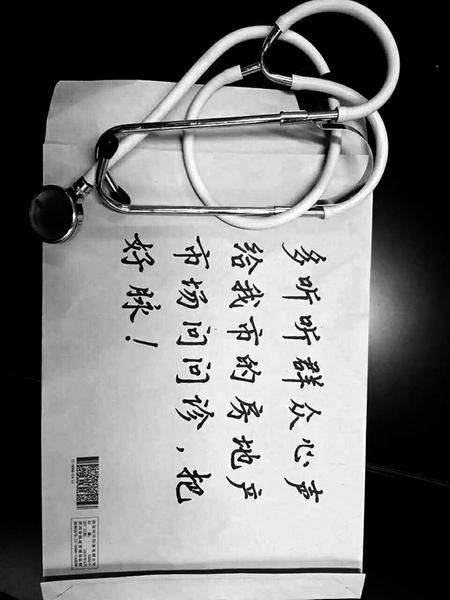 多听听群众心声
给我市的房地产
市场问问诊，把
好脉！